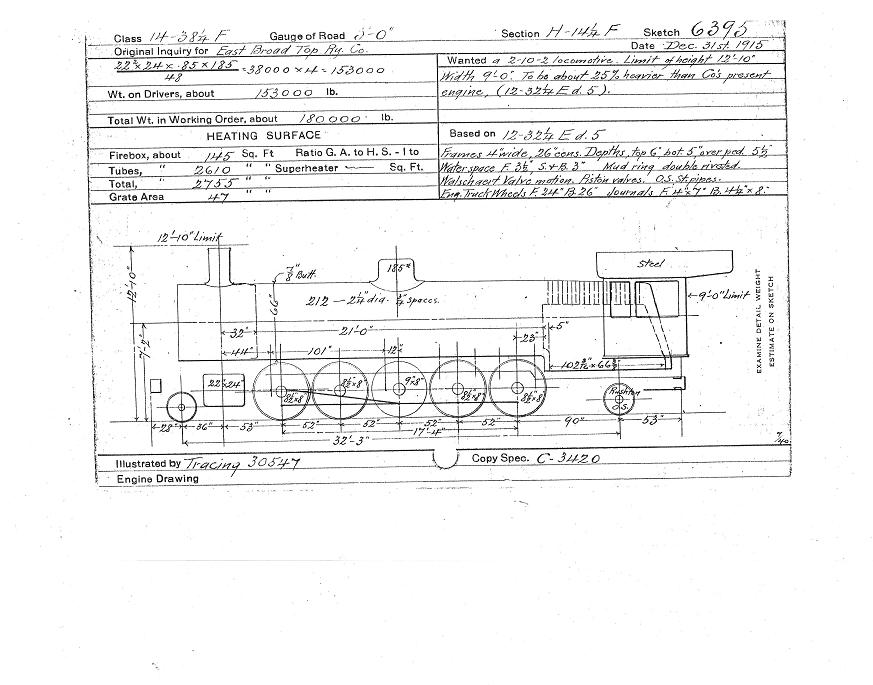 Class 14-38¼ F Gauge of Road 3'-0" Section H-14½ F Sketch 6395
Original Inquiry for East Broad Top Ry. Co. Date Dec. 31st. 1915
22² × 24 × .85 × 185 / 48 = 38000 × 4 = 153000
Wt. on Drivers, about 153000 lb.
Total Wt. in Working Order, about 180000 lb.
HEATING SURFACE
Firebox, about 145 Sq. Ft Ratio G. A. to H. S. - 1 to
Tubes, " 2610 " " Superheater Sq. Ft.
Total, " 2755 " "
Grate Area 47 " "
Wanted a 2-10-2 locomotive. Limit of height 12'-10"
Width 9'-0". To be about 25% heavier than Co's present
engine, (12-32¼ E d. 5).
Based on 12-32¼ E d. 5
Frames 4" wide, 26" cens. Depths, top 6" bot. 5" over ped. 5½"
Water space F. 3½" S.+B. 3" Mud ring double riveted.
Walschaert Valve motion. Piston valves. O.S. St. pipes.
Eng. Truck Wheels F. 24" B. 26" Journals F. 4½ × 7" B. 4½" × 8"
12'-10" Limit
7/8" Butt
185#
Steel
12'-10"
66"
212 - 2¼" dia. ¾" spaces.
9'-0" Limit
EXAMINE DETAIL WEIGHT
ESTIMATE ON SKETCH
7'-2"
32"
21'-0"
5"
44"
101"
12"
23"
102 3/16 × 66 3/8"
22" × 24"
8½ × 8"
8½ × 8
9" × 8"
8½ × 8"
8½ × 8"
Rushton
O.S.
28" 36" 53" 52" 52" 52" 52" 90" 53"
17'-4"
32'-3"
Illustrated by Tracing 30547 Copy Spec. C-3420
Engine Drawing